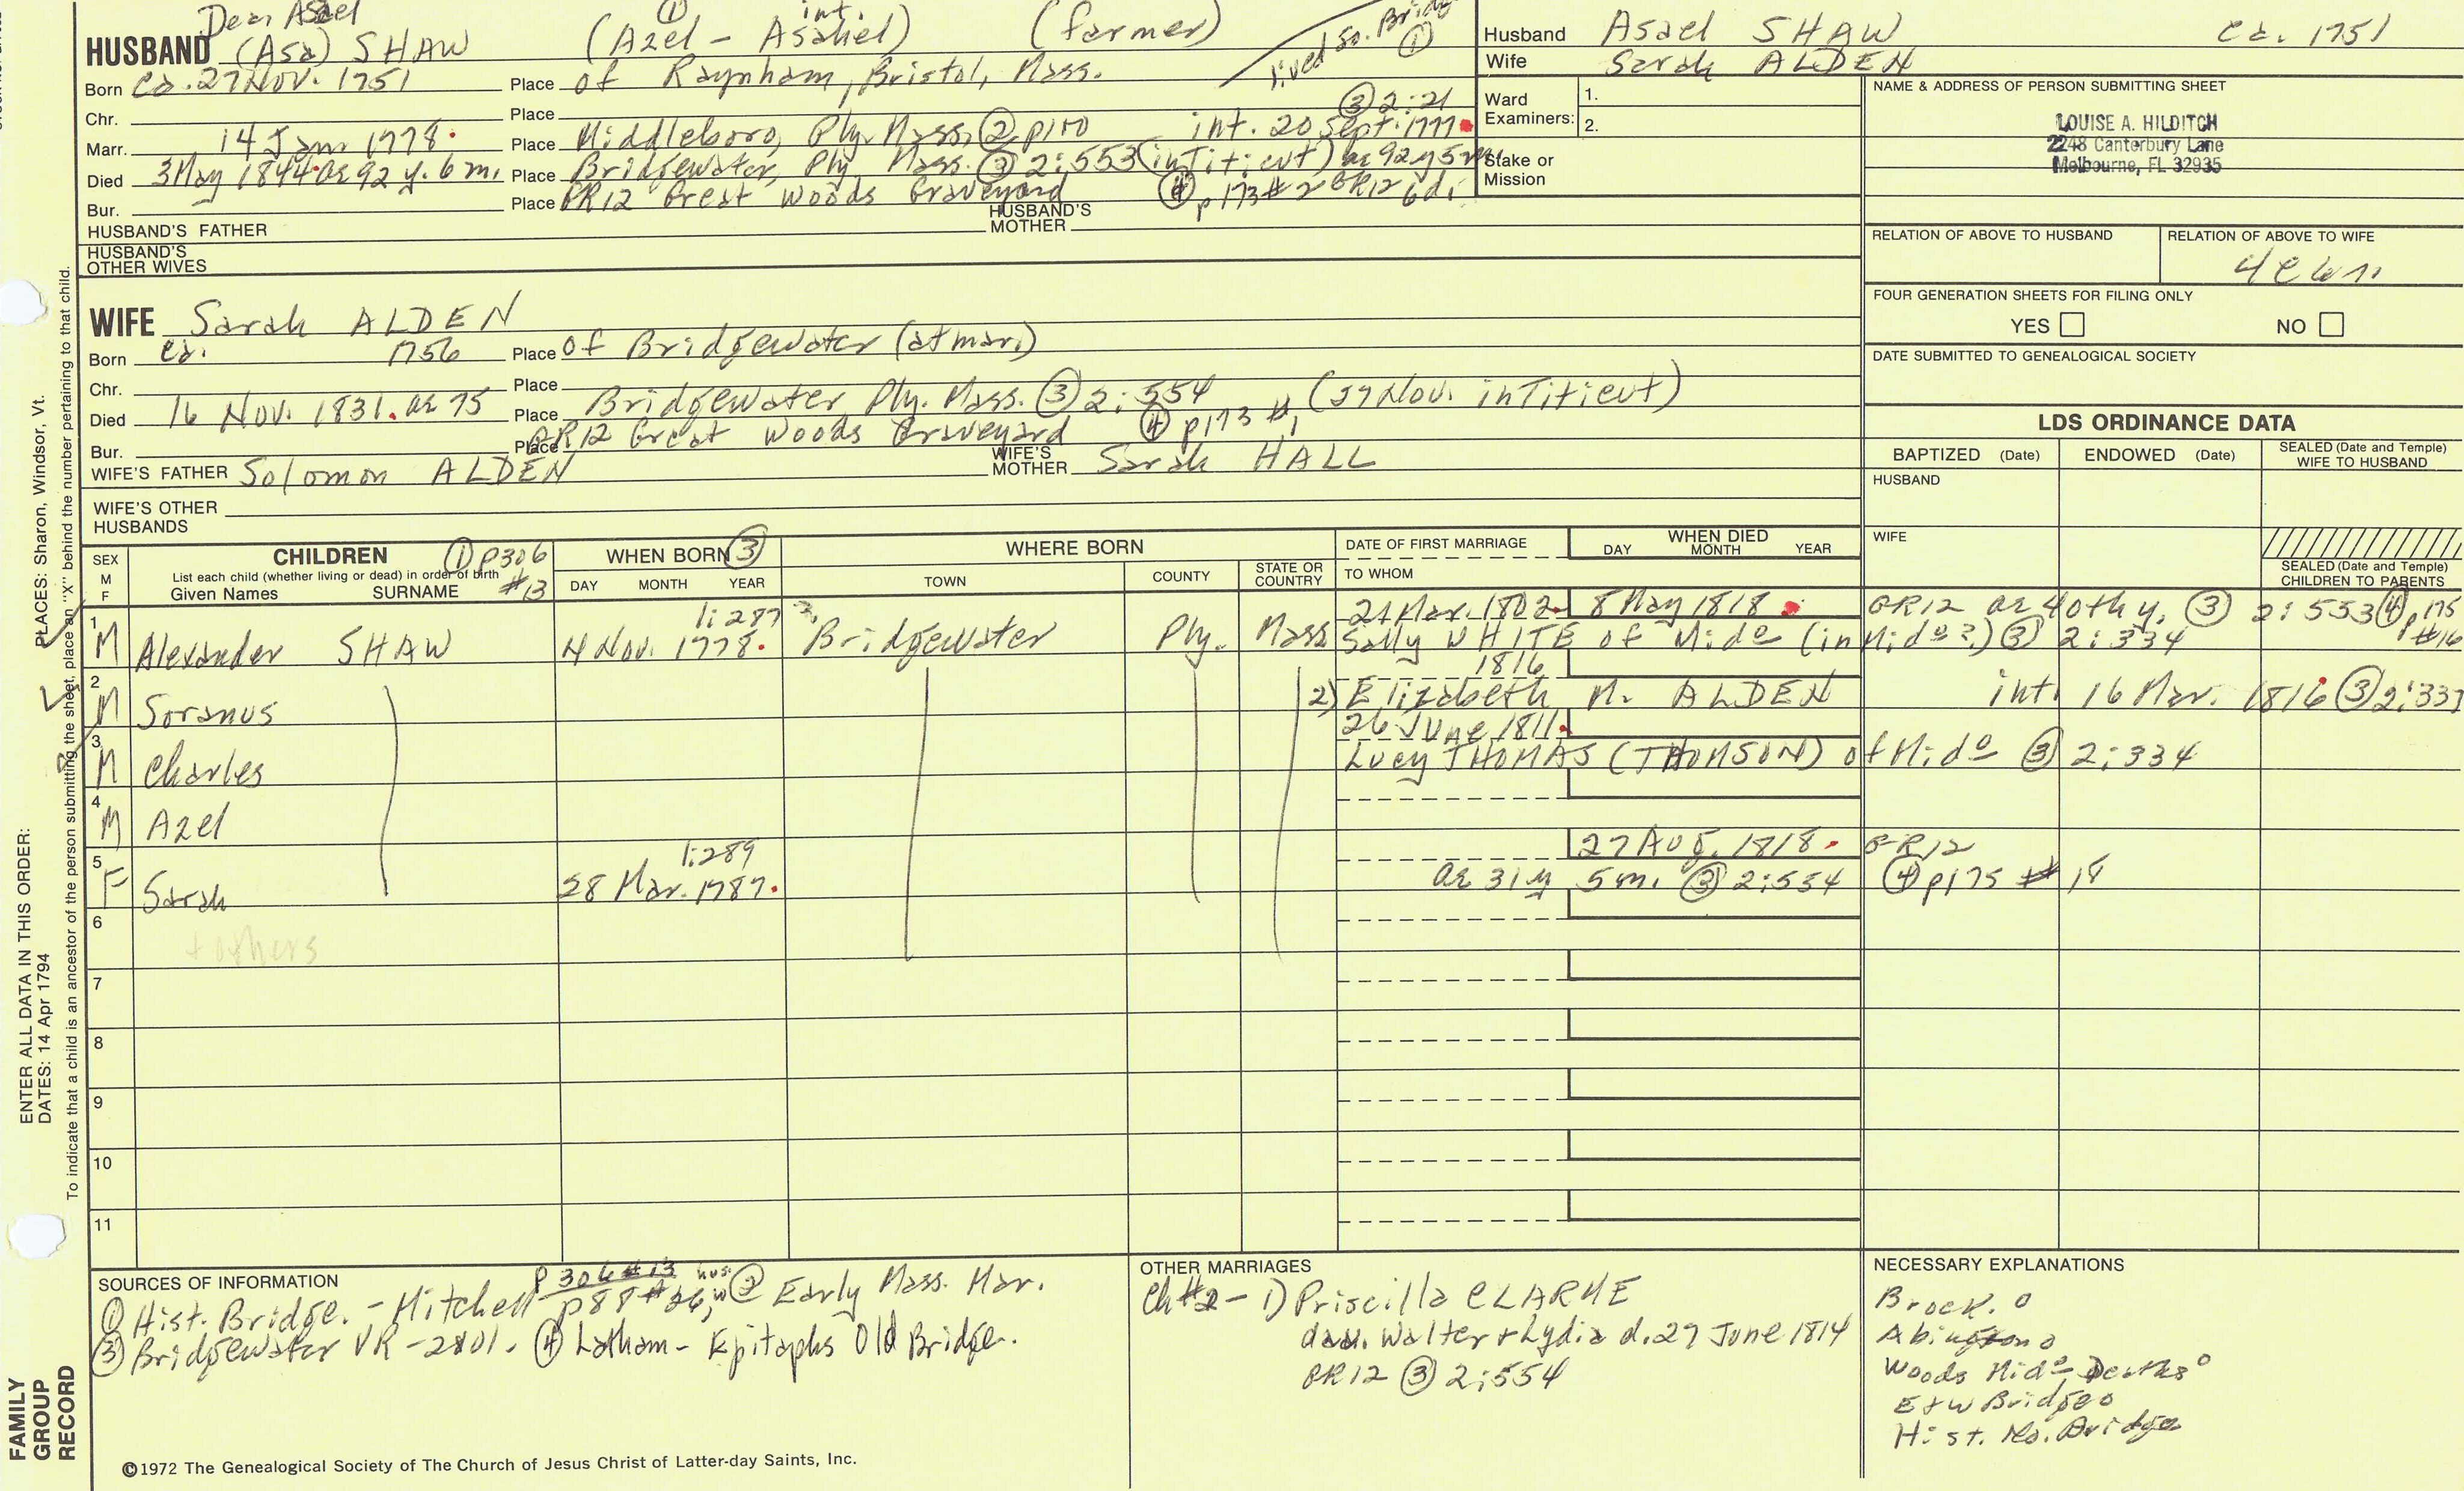 Dea. Asael
HUSBAND (Asa) SHAW (Azel - Asahel) ① int. (farmer) lived So. Bridg ①
Born ca. 27 Nov. 1751 Place of Raynham, Bristol, Mass.
Chr. Place
Marr. 14 Jan. 1778. Place Middleboro, Ply. Mass. ② p170 int. 20 Sept. 1777. ③ 2:21
Died 3 May 1844. ae 92 y. 6 m. Place Bridgewater, Ply. Mass. ③ 2:553 (in Titicut) ae 92 y 5 m
Bur. Place GR12 Great Woods Graveyard ④ p173 #2 GR12 6 d.
HUSBAND'S FATHER HUSBAND'S MOTHER
HUSBAND'S OTHER WIVES
Husband Asael SHAW ca. 1751
Wife Sarah ALDEN
Ward Examiners: 1. 2.
Stake or Mission
NAME & ADDRESS OF PERSON SUBMITTING SHEET
LOUISE A. HILDITCH
2248 Canterbury Lane
Melbourne, FL 32935
RELATION OF ABOVE TO HUSBAND RELATION OF ABOVE TO WIFE
FOUR GENERATION SHEETS FOR FILING ONLY
YES NO
DATE SUBMITTED TO GENEALOGICAL SOCIETY
WIFE Sarah ALDEN
Born ca. 1756 Place of Bridgewater (at mar.)
Chr. Place
Died 16 Nov. 1831. ae 75 Place Bridgewater Ply. Mass. ③ 2:554 (27 Nov. in Titicut)
Bur. Place GR12 Great Woods Graveyard ④ p173 #1
WIFE'S FATHER Solomon ALDEN WIFE'S MOTHER Sarah HALL
WIFE'S OTHER HUSBANDS
LDS ORDINANCE DATA
BAPTIZED (Date) ENDOWED (Date) SEALED (Date and Temple) WIFE TO HUSBAND
HUSBAND
WIFE
SEALED (Date and Temple) CHILDREN TO PARENTS
SEX M F CHILDREN ① p306 #13 WHEN BORN ③ WHERE BORN DATE OF FIRST MARRIAGE WHEN DIED
List each child (whether living or dead) in order of birth
Given Names SURNAME DAY MONTH YEAR TOWN COUNTY STATE OR COUNTRY TO WHOM DAY MONTH YEAR
1 1:287 21 Mar. 1802. 8 May 1818. GR12 ae 40th y. ③ 2:553 ④ p175 #16
M Alexander SHAW 4 Nov. 1778. Bridgewater Ply. Mass Sally WHITE of Mido (in Mido?) ③ 2:334
2 1816
M Soranus 2) Elizabeth M. ALDEN int. 16 Mar. 1816 ③ 2:337
3 26 June 1811.
M Charles Lucy THOMAS (THOMSON) of Mido ③ 2:334
4
M Azel
5 1:289 27 Aug. 1818. GR12
F Sarah 28 Mar. 1787. ae 31 y 5 m. ③ 2:554 ④ p175 #18
6 + others
7
8
9
10
11
SOURCES OF INFORMATION
① Hist. Bridge. - Mitchell p306 #13 hus. p88 #26, w ② Early Mass. Mar.
③ Bridgewater VR - 2801. ④ Latham - Epitaphs Old Bridge.
OTHER MARRIAGES
Ch #2 - 1) Priscilla CLARKE
dau. Walter + Lydia d. 27 June 1814
GR12 ③ 2:554
NECESSARY EXPLANATIONS
Brock. o
Abington o
Woods Mido Deaths o
E + W Bridge o
Hist. No. Bridge
©1972 The Genealogical Society of The Church of Jesus Christ of Latter-day Saints, Inc.
FAMILY GROUP RECORD
ENTER ALL DATA IN THIS ORDER:
DATES: 14 Apr 1794
PLACES: Sharon, Windsor, Vt.
To indicate that a child is an ancestor of the person submitting the sheet, place an "X" behind the number pertaining to that child.